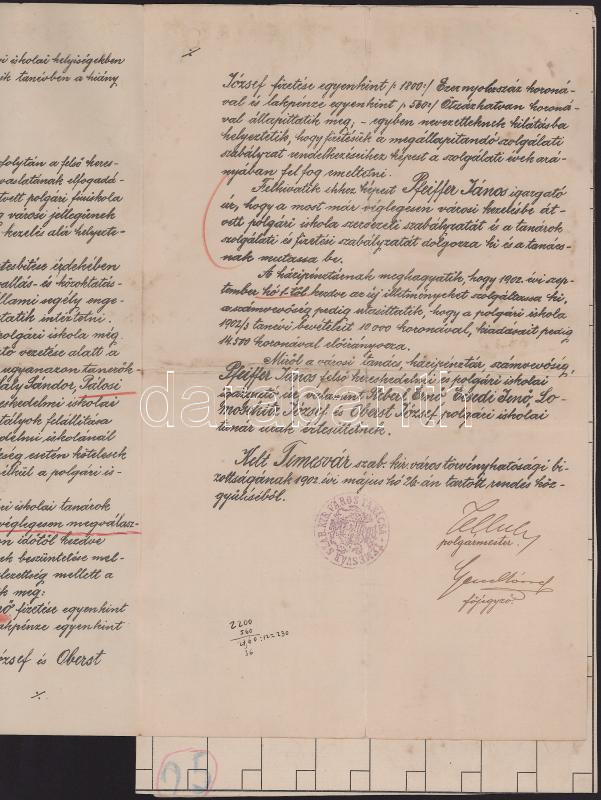 ri iskolai helyiségekben
ik tanévben a hiány
folytán a felső keres-
vaslatának elfogadá-
tvett polgári fiúiskola
g városi jellegének
kezelés alá helyezte-
tesbitése érdekében
vallás- és közoktatás-
állami segély enge-
tatik intéztetni.
polgári iskola még
tó vezetése alatt a
ugyanazon tanerők
Sándor, Pilosi
eskedelmi iskolai
tályok felállitása
delmi iskolánál
kség esetén kötelesek
nélkül a polgári is-
ri iskolai tanárok
véglegesen megválasz-
on időtől kezdve
ek beszüntetése mel-
elezettség mellett a
k meg:
fizetése egyenkint
lakpénze egyenkint
ózsef és Oberst
József fizetése egyenkint p 1800:/ Ezernyolcszáz koroná-
val és lakpénze egyenkint p 560:/ Ötszázhatvan koroná-
val állapittatik meg, - egyben nevezetteknek kilátásba
helyeztetik, hogy fizetésük a megállapitandó szolgálati
szabályzat rendelkezéseihez képest a szolgálati évek ará-
nyában fel fog emeltetni.
Felhivatik ehhez képest Pfeiffer János igazgató
úr, hogy a most már véglegesen városi kezelésbe át-
vett polgári iskola szervezeti szabályzatát és a tanárok
szolgálati és fizetési szabályzatát dolgozza ki és a tanács-
nak mutassa be.
A házipénztárnak meghagyatik, hogy 1902. évi szep-
tember hó 1-től kezdve az új illetményeket szolgáltassa ki,
a számvevőség pedig utasittatik, hogy a polgári iskola
1902/3 tanévi bevételeit 10 000 koronával, kiadásait pedig
14.500 koronával előirányozza.
Miről a városi tanács, házipénztár, számvevőség,
Pfeiffer János felső kereskedelmi és polgári iskolai
igazgató úr, Ernő, Eredi Jenő, Lo-
József és Oberst József polgári iskolai
tanár urak értesittetnek.
Kelt Temesvár szab. kir. város törvényhatósági bi-
zottságának 1902. évi május hó 26-án tartott rendes köz-
gyüléséből.
polgármester.
főjegyző.
TEMESVÁR SZAB. KIR. VÁROS TANÁCSA
2200
560
:12=230
36
95
darabanth